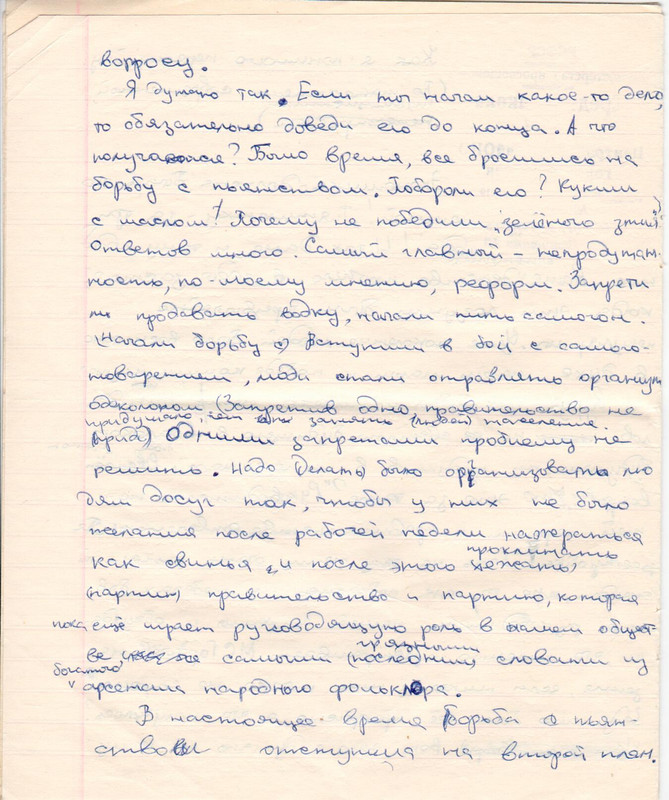 вопросу.
Я думаю так. Если ты начал какое-то дело,
то обязательно доведи его до конца. А что
получается? Было время, все бросились на
борьбу с пьянством. Побороли его? Кукиш
с маслом! Почему не победили „зелёного змия"?
Ответов много. Самый главный – непродуман-
ностью, по-моему мнению, реформ. Запрети
ли продавать водку, начали пить самогон.
(Начали борьбу с) Вступили в бой с самого-
новарением, люди стали отравлять организм
одеколоном. (Запретив одно, правительство не
придумало, чем занять (людей) население.
(прид) Одними запретами проблему не
решить. Надо (делать) было организовать лю
дям досуг так, чтобы у них не было
желания после рабочей недели нажраться
как свинья, и после этого проклинать
(партию) правительство и партию, которая
пока ещё играет руководящую роль в нашем общест-
ве самыми грязными (последними) словами из
богатого арсенала народного фольклора.
В настоящее время борьба с пьян-
ством отступила на второй план.